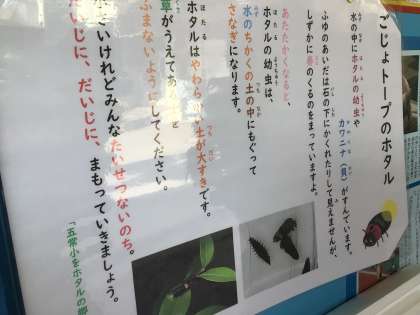 ごじょトープのホタル
水の中にホタルの幼虫や
カワニナ(貝)がすんでいます。
ふゆのあいだは石の下にかくれたりして見えませんが、
しずかに春のくるのをまっていますよ。
あたたかくなると、
ホタルの幼虫は、
水のちかくの土の中にもぐって
さなぎになります。
ホタルはやわらかい土が大すきです。
草がうえてあ
ふまないようにしてください。
さいけれどみんなたいせつないのち。
だいじに、だいじに、まもっていきましょう。
「五常小をホタルの郷